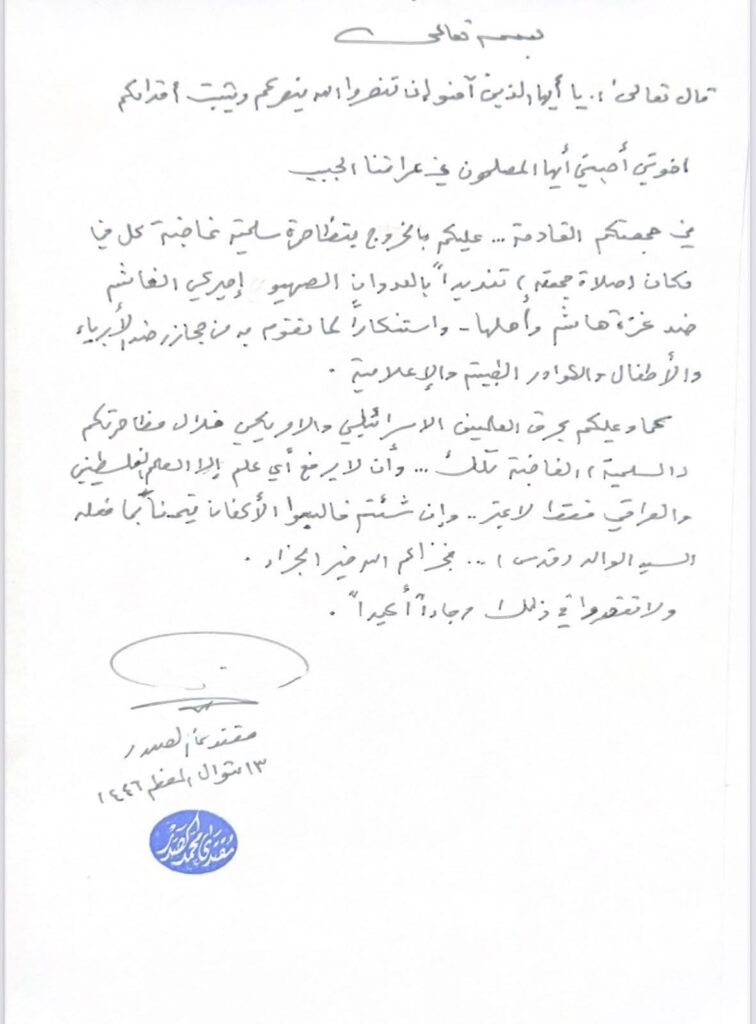 بسمه تعالى
قال تعالى: يا أيها الذين آمنو إن تنصروا الله ينصركم ويثبت أقدامكم
اخوتي أحبتي أيها المصلون في عراقنا الحبيب
في جمعتكم القادمة... عليكم بالخروج بتظاهرة سلمية غاضبة كل في
مكان (صلاة جمعته) تنديداً بالعدوان الصهيو إمريكي الغاشم
ضد غزة هاشم وأهلها - واستنكاراً لما تقوم به من مجازر ضد الأبرياء
والأطفال والكوادر الطبية والإعلامية .
كما وعليكم بحرق العلمين الاسرائيلي والامريكي خلال مظاهرتكم
(السلمية) الغاضبة تلك ... وأن لا يرفع أي علم إلا العلم الفلسطيني
والعراقي فقط لا غير .. وإن شئتم فالبسوا الأكفان تيمناً بما فعله
السيد الوالد (قدس) ... فجزاكم الله خير الجزاء .
ولا تقصروا في ذلك رجاءاً أكيداً .
مقتدى الصدر
١٣ شوال المعظم ١٤٤٦
مقتدى محمد الصدر